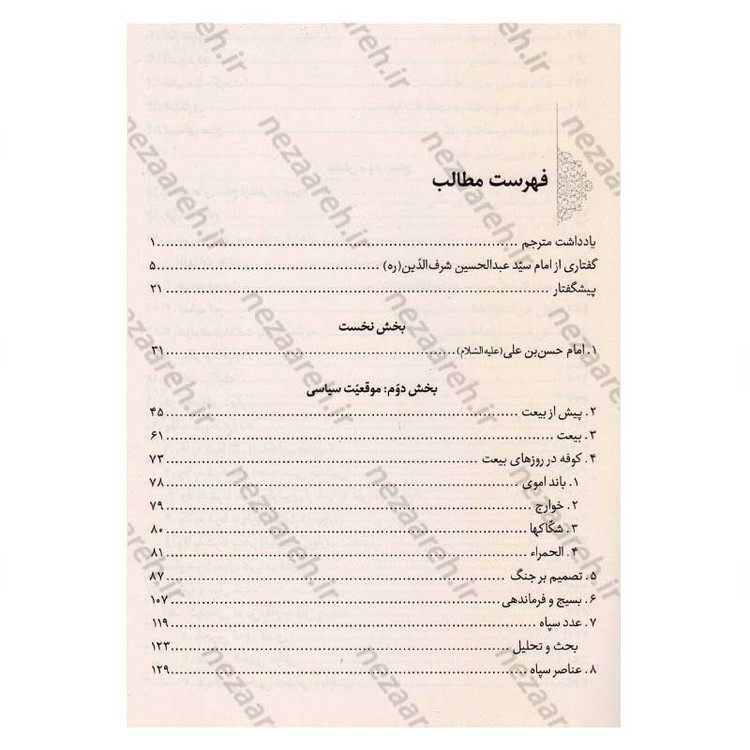 فهرست مطالب
یادداشت مترجم ........ ۱
گفتاری از امام سیّد عبدالحسین شرف‌الدّین(ره) ........ ۵
پیشگفتار ........ ۲۱
بخش نخست
۱. امام حسن‌بن علی(علیه‌السّلام) ........ ۳۱
بخش دوّم: موقعیّت سیاسی
۲. پیش از بیعت ........ ۴۵
۳. بیعت ........ ۶۱
۴. کوفه در روزهای بیعت ........ ۷۳
۱. باند اموی ........ ۷۸
۲. خوارج ........ ۷۹
۳. شکّاکها ........ ۸۰
۴. الحمراء ........ ۸۱
۵. تصمیم بر جنگ ........ ۸۷
۶. بسیج و فرماندهی ........ ۱۰۷
۷. عدد سپاه ........ ۱۱۹
بحث و تحلیل ........ ۱۲۳
۸. عناصر سپاه ........ ۱۲۹
nezaareh.ir